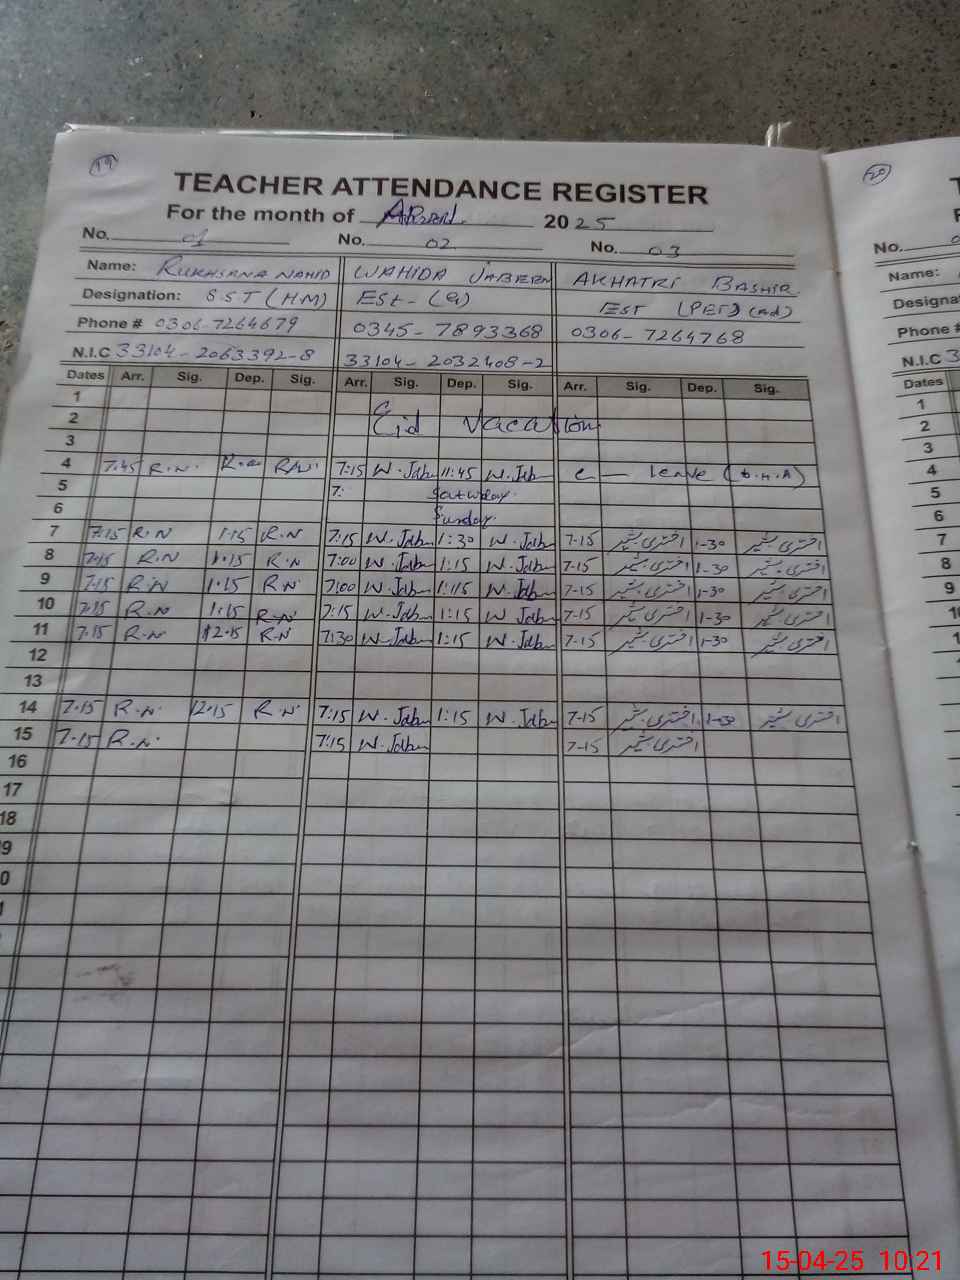 19
TEACHER ATTENDANCE REGISTER
For the month of April 2025
No. 01 No. 02 No. 03
Name: RUKHSANA NAHID WAHIDA JABEEN AKHATRI BASHIR
Designation: S.S.T (HM) ESt- EST (PET)
Phone # 0306-7264679 0345-7893368 0306-7264768
N.I.C 33104-2063392-8 33104-2032408-2
Dates Arr. Sig. Dep. Sig. Arr. Sig. Dep. Sig. Arr. Sig. Dep. Sig.
1
2 Eid Vacation
3
4 7:45 R.N. R.N. 7:15 W.Jabn 11:45 W.Jabn C — leave
5 7: Saturday.
6 Sunday.
7 7:15 R.N 1:15 R.N 7:15 W.Jabn 1:30 W.Jabn 7-15 اختری بشیر 1-30 اختری بشیر
8 7:15 R.N 1:15 R.N 7:00 W.Jabn 1:15 W.Jabn 7-15 اختری بشیر 1-30 اختری بشیر
9 7:15 R.N 1:15 R.N 7:00 W.Jabn 1:15 W.Jabn 7-15 اختری بشیر 1-30 اختری بشیر
10 7:15 R.N 1:15 R.N 7:15 W.Jabn 1:15 W.Jabn 7-15 اختری بشیر 1-30 اختری بشیر
11 7:15 R.N 12:15 R.N 7:30 W.Jabn 1:15 W.Jabn 7-15 اختری بشیر 1-30 اختری بشیر
12
13
14 7:15 R.N 12:15 R.N 7:15 W.Jabn 1:15 W.Jabn 7-15 اختری بشیر 1-30 اختری بشیر
15 7:15 R.N. 7:15 W.Jabn 7-15 اختری بشیر
16
17
18
9
0
20
No.
Name:
Designa
Phone #
N.I.C 3
Dates
1
2
3
4
5
6
7
8
9
10
1
15-04-25 10:21